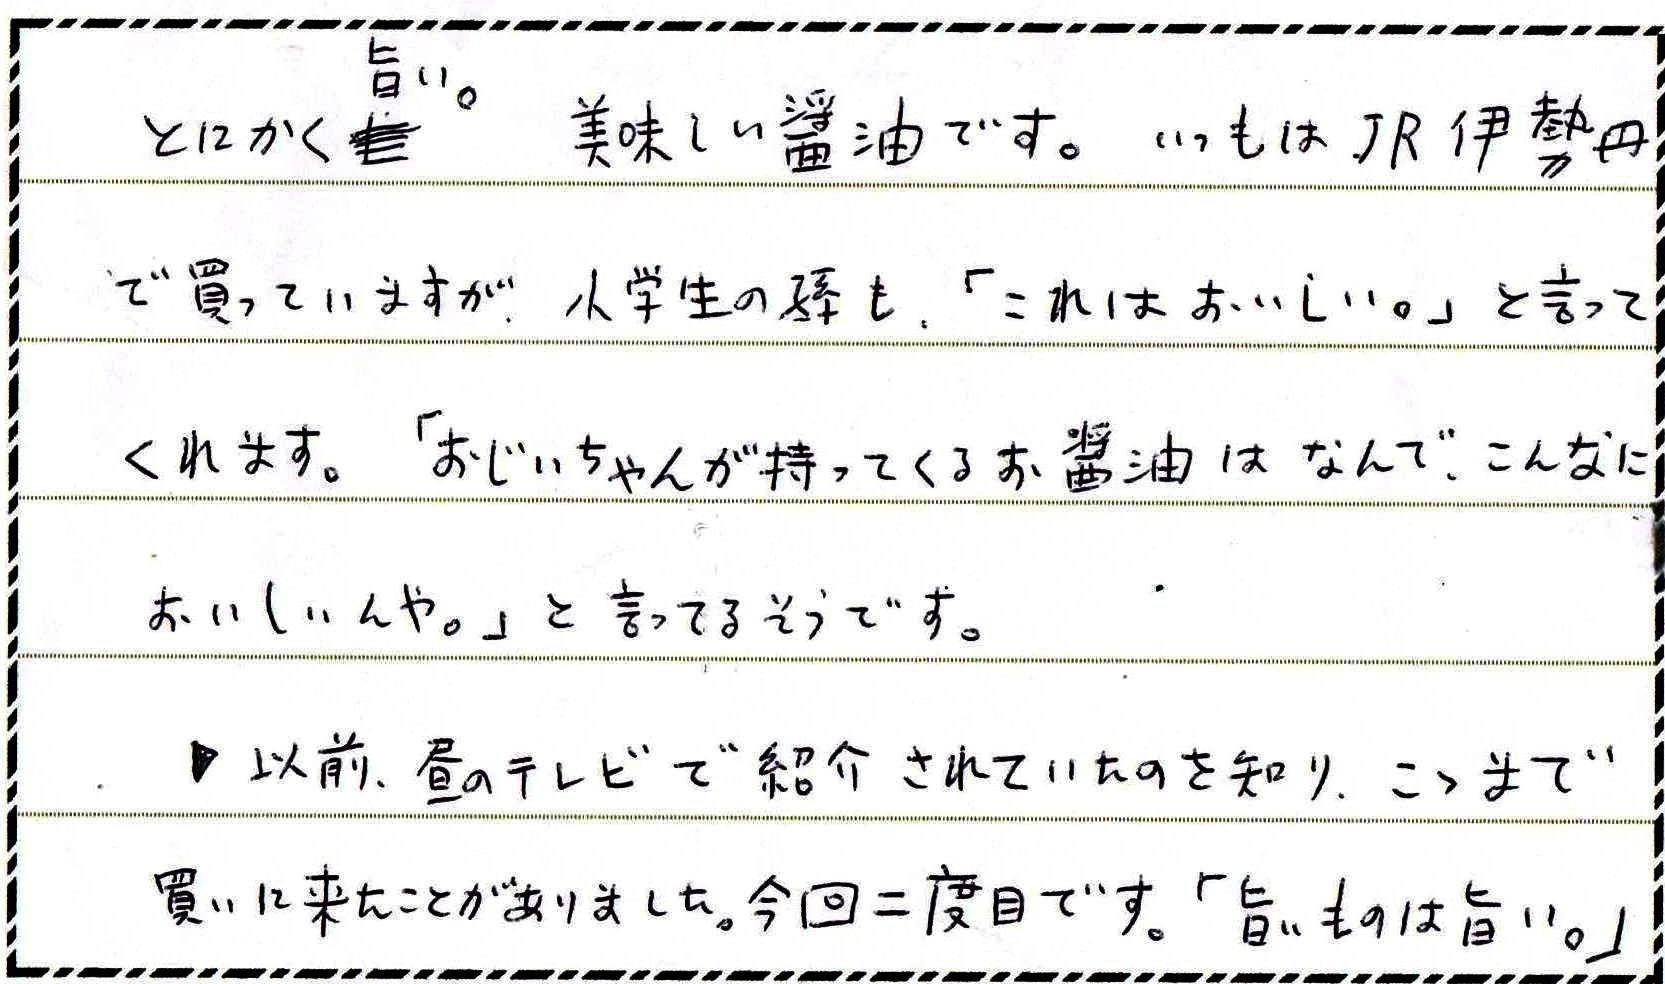 とにかく旨い。 美味しい醤油です。いつもはJR伊勢丹
で買っていますが、小学生の孫も、「これはおいしい。」と言って
くれます。「おじいちゃんが持ってくるお醤油はなんで、こんなに
おいしいんや。」と言ってるそうです。
以前、昼のテレビで紹介されていたのを知り、こゝまで
買いに来たことがありました。今回二度目です。「旨いものは旨い。」